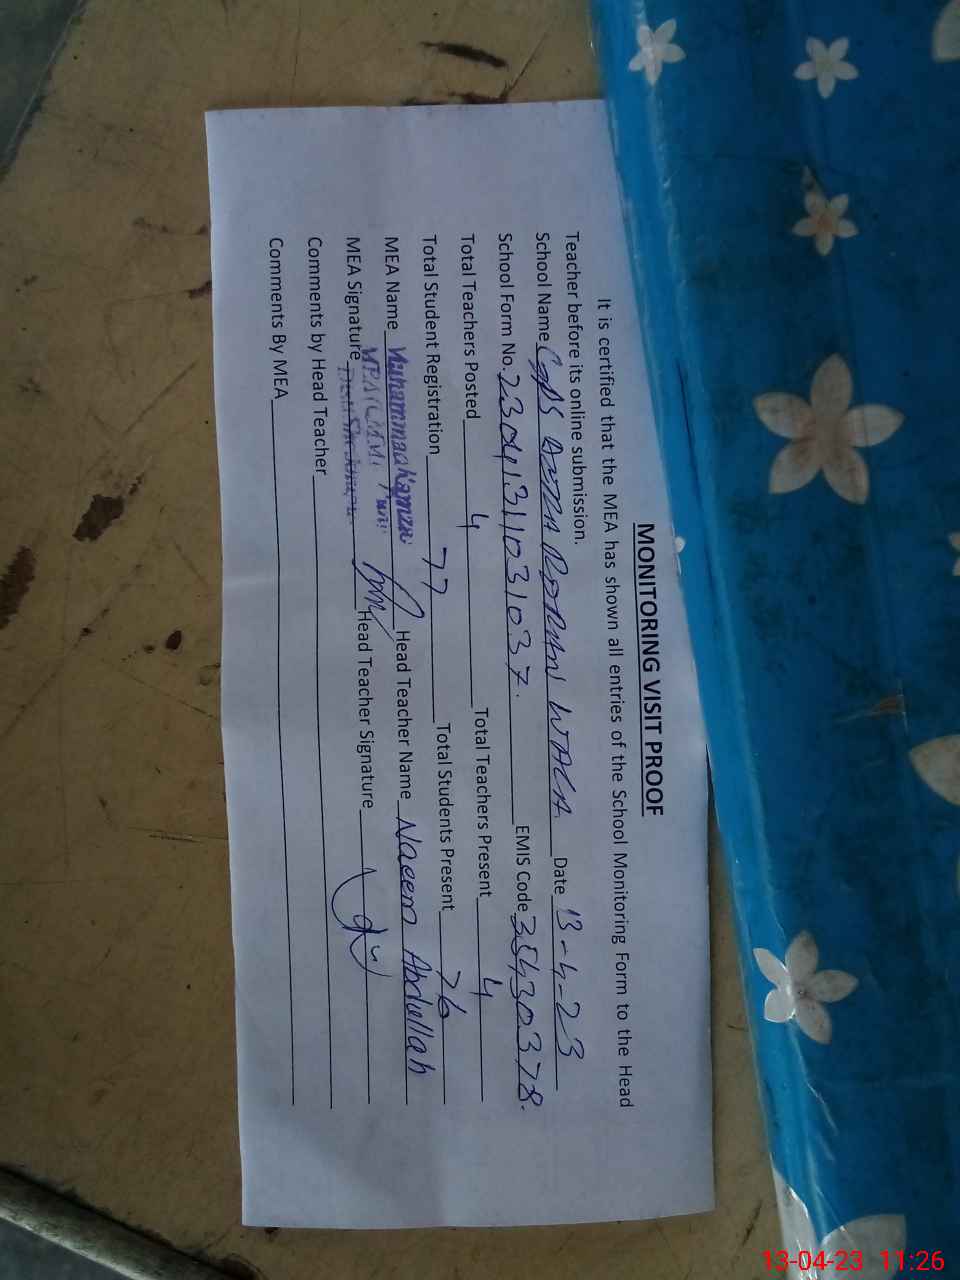 MONITORING VISIT PROOF
It is certified that the MEA has shown all entries of the School Monitoring Form to the Head
Teacher before its online submission.
School Name WALA Date 13-4-23
School Form No. 23041311031037. EMIS Code 35430378.
Total Teachers Posted 4 Total Teachers Present 4
Total Student Registration 77 Total Students Present 76
MEA Name Muhammad Kamran Head Teacher Name Naeem Abdullah
MEA Signature Head Teacher Signature
Comments by Head Teacher
Comments By MEA
13-04-23 11:26